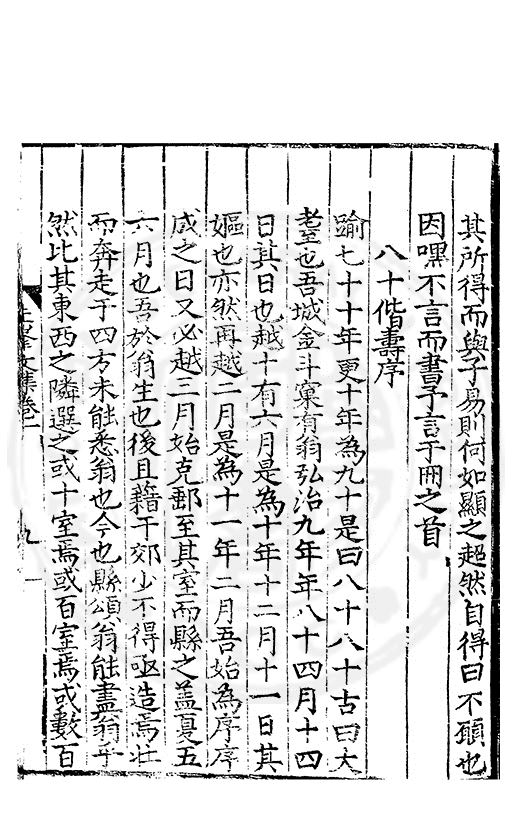 其所得而與子易則何如顯之超然自得曰不願也
因嘿不言而書予言于冊之首
八十偕壽序
踰七十十年更十年為九十是曰八十八十古曰大
耋也吾城金斗窠有翁弘治九年年八十四月十四
日其日也越十有六月是為十年十二月十一日其
嫗也亦然再越二月是為十一年二月吾始為序序
成之日又必越三月始克郵至其室而縣之蓋夏五
六月也吾於翁生也後且藉干郊少不得亟造焉壯
而奔走于四方未能悉翁也今也縣頌翁能盡翁乎
然比其東西之隣選之或十室焉或百室焉或數百
文集卷二
九